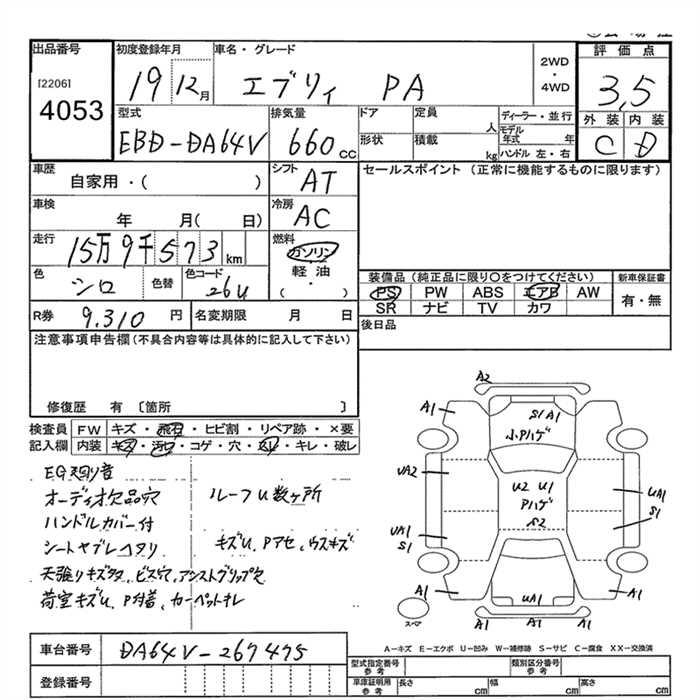 出品番号 初度登録年月 車名・グレード 2WD・4WD 評価点
[2206] 19 12月 エブリィ PA 3,5
4053
型式 排気量 ドア 定員 人 ディーラー・並行 外装 内装
EBD-DA64V 660cc 形状 積載 kg モデル年式 年 ハンドル 左・右 C D
車歴 シフト セールスポイント (正常に機能するものに限ります)
自家用・( ) AT
車検 冷房
年 月( 日) AC
走行 燃料
15万9千573km ガソリン
色 色替 色コード 軽油 装備品(純正品に限り○をつけてください) 新車保証書
シロ 26U (・) PS PW ABS エアB AW 有・無
SR ナビ TV カワ
R券 9.310円 名変期限 月 日 後日品
注意事項申告欄(不具合内容等は具体的に記入して下さい)
修復歴 有 〔箇所 〕
検査員 FW キズ・飛石・ヒビ割・リペア跡・×要
記入欄 内装 キズ・汚レ・コゲ・穴・スレ・キレ・破レ
EG廻り音
オーディオ欠品穴 ルーフU数ヶ所
ハンドルカバー付
シートヤブレヘタリ キズU、Pアセ、ウスキズ
天張りキズ、ビス穴、アシストグリップ欠
荷室キズU、P付着、カーペットキレ
A2
A1 S1 A1 A1
小Pハゲ
UA2 U2 U1 UA1
Pハゲ S1
UA1 S2
S1
A1 UA1 A1
スペア A1 A1 A1
車台番号 DA64V-267475
A－キズ E－エクボ U－凹み W－補修跡 S－サビ C－腐食 XX－交換済
登録番号 型式指定番号 参考 類別区分番号 参考
車庫証明用 参考 長さ cm 幅 cm 高さ cm